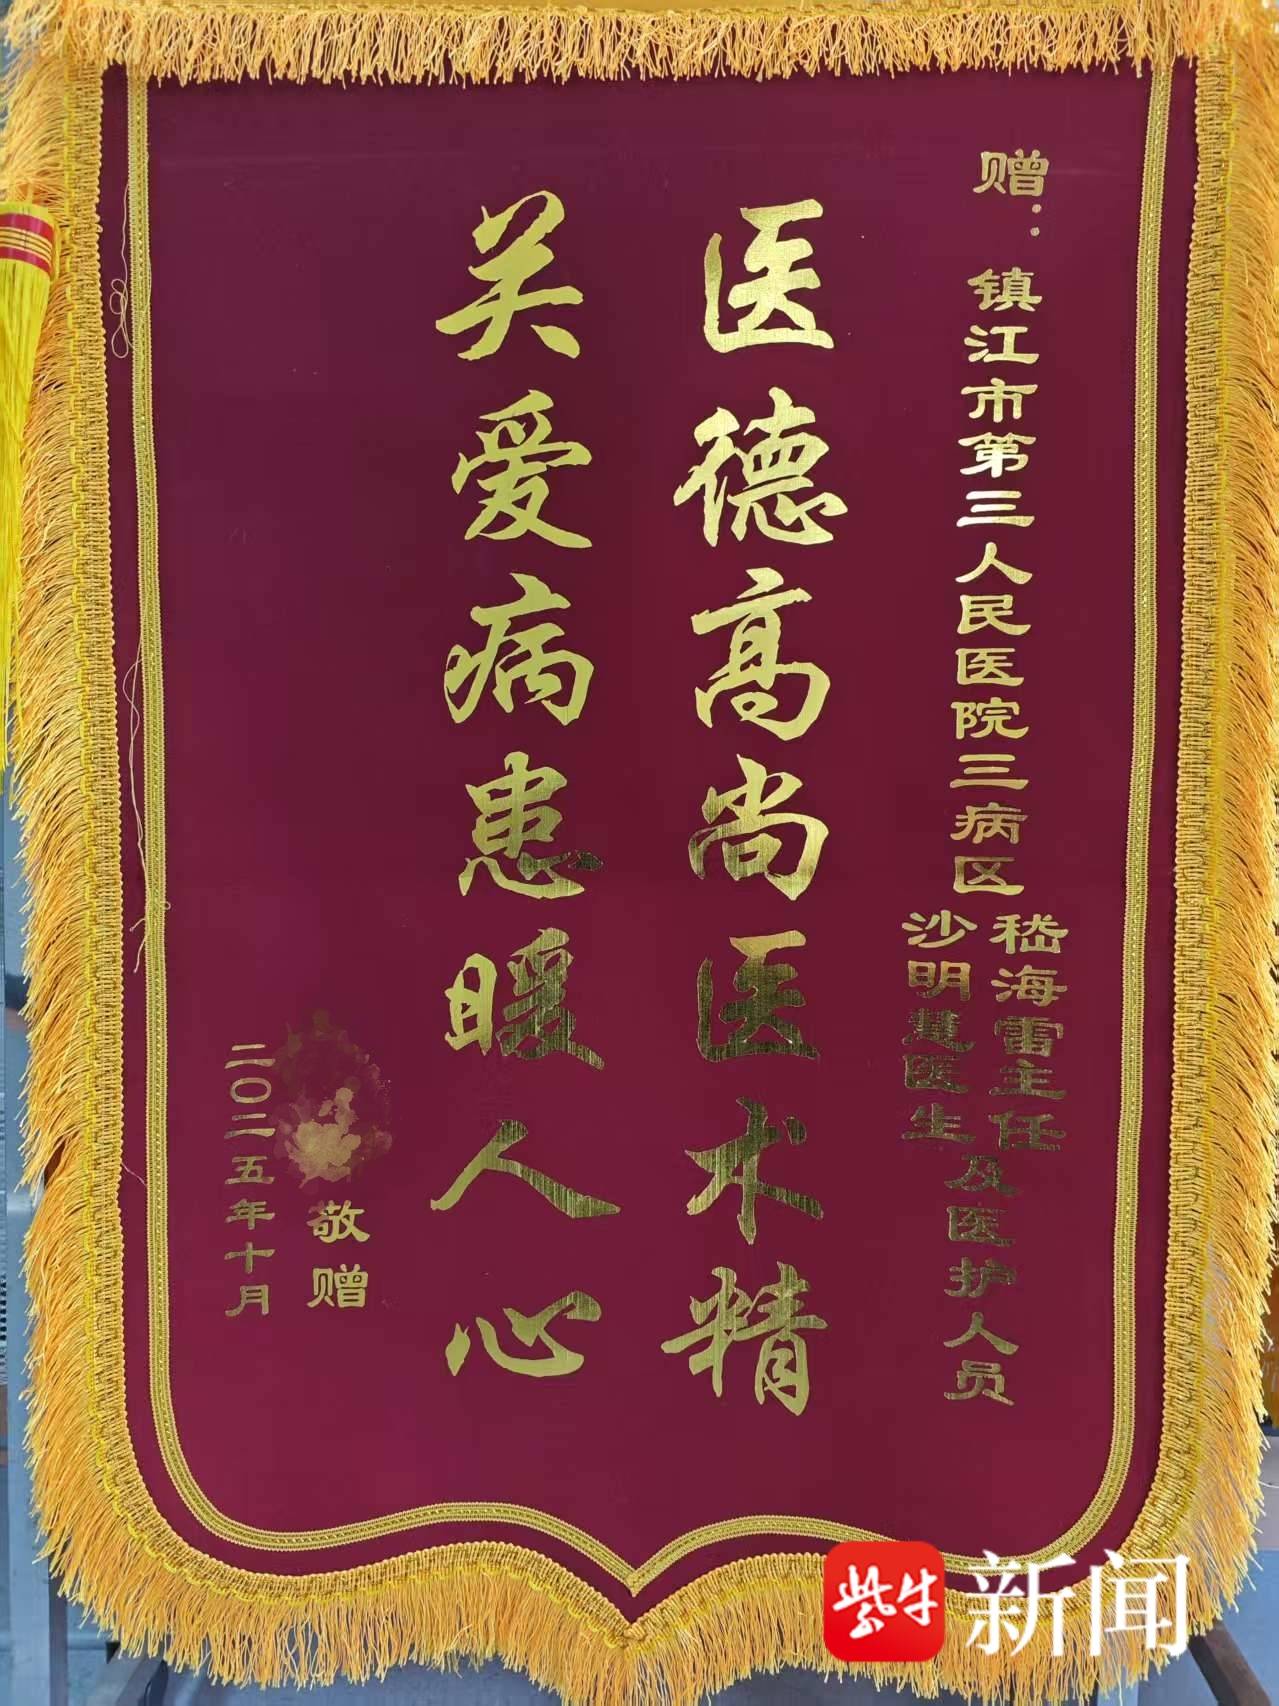 赠：镇江市第三人民医院三病区
嵇海雷主任
沙明慧医生
及医护人员
医德高尚医术精
关爱病患暖人心
敬赠
二〇二五年十月
紫牛新闻